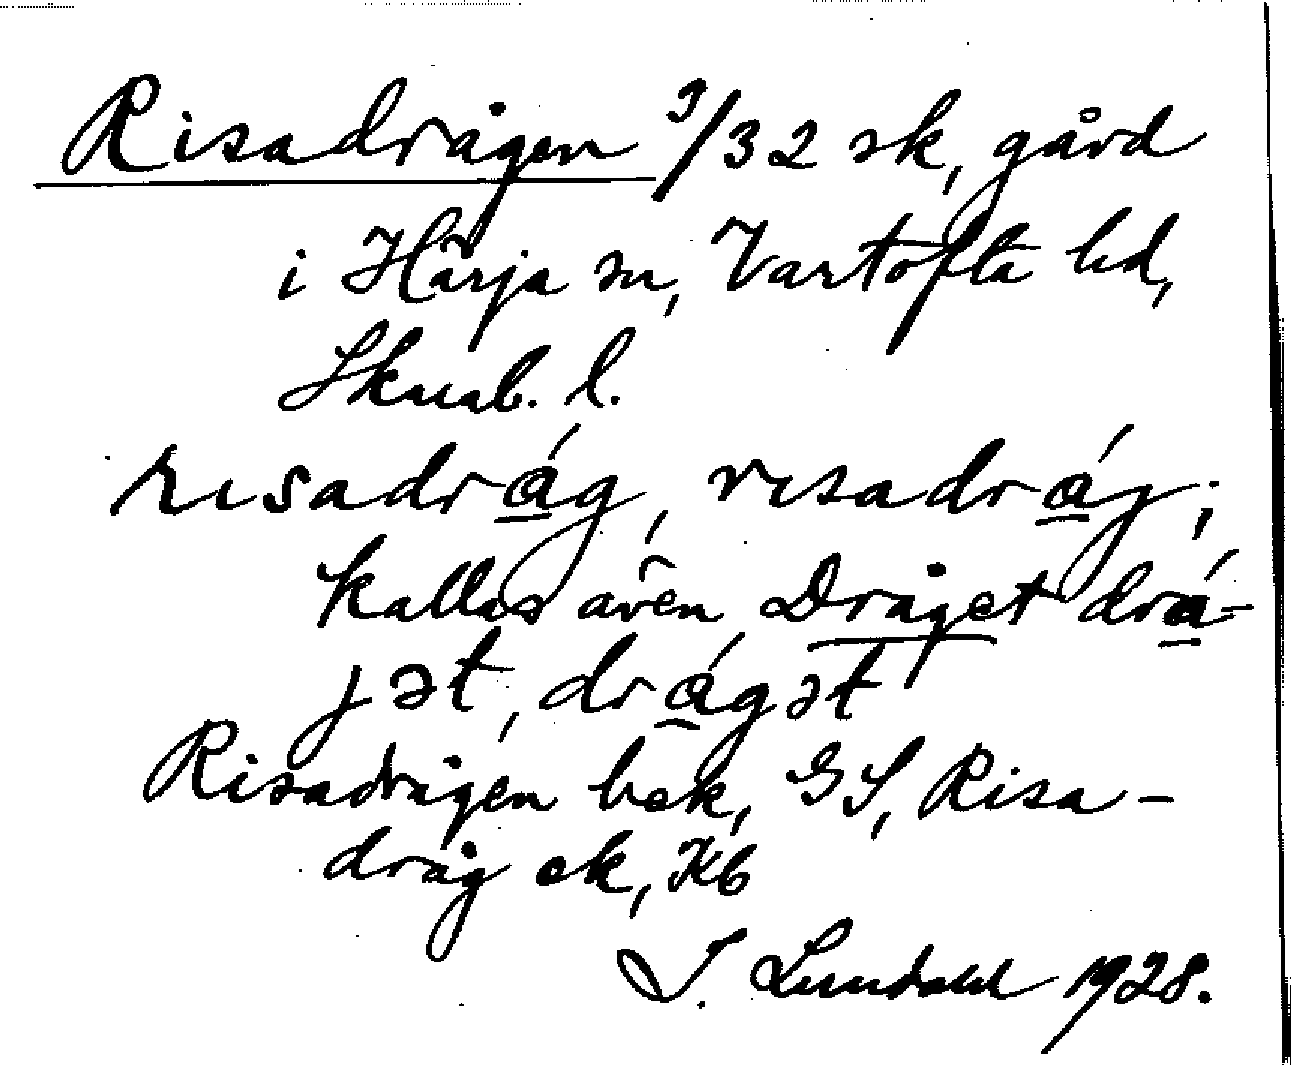 Risadrågen 9/32 sk, gård
i Härja sn, Vartofta hd,
Skarab. l.
rɩsadrág, rɩsadráǥ;
kallas även Dråget drá-
ʝət, drágət
Risadrågen bek, GS, Risa-
dråg ek, Kb
I. Lundahl 1928.